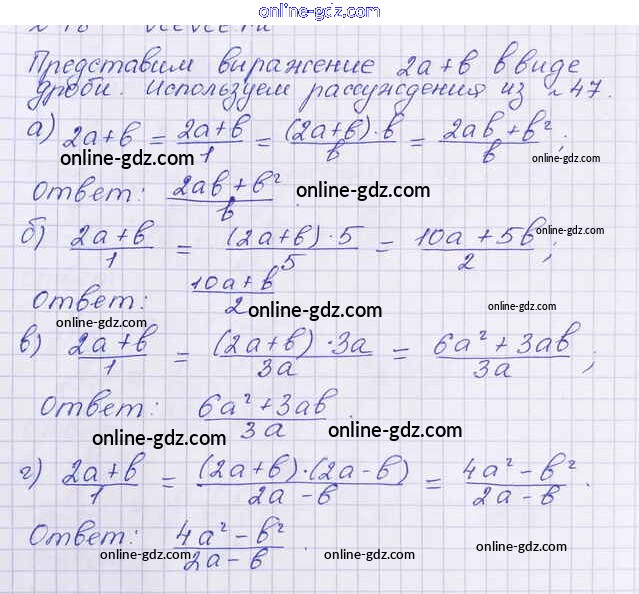 online-gdz.com
Представим виражение 2a+b в виде
дроби. Используем рассуждения из №47.
а) 2a+b = (2a+b)/1 = ((2a+b)·b)/b = (2ab+b²)/b;
online-gdz.com online-gdz.com online-gdz.com
Ответ: (2ab+b²)/b. online-gdz.com
б) (2a+b)/1 = ((2a+b)·5)/5 = (10a+5b)/2; online-gdz.com
Ответ: (10a+b)/2
online-gdz.com online-gdz.com online-gdz.com
в) (2a+b)/1 = ((2a+b)·3a)/3a = (6a²+3ab)/3a;
Ответ: (6a²+3ab)/3a.
online-gdz.com online-gdz.com
г) (2a+b)/1 = ((2a+b)·(2a-b))/(2a-b) = (4a²-b²)/(2a-b).
Ответ: (4a²-b²)/(2a-b).
online-gdz.com online-gdz.com online-gdz.com